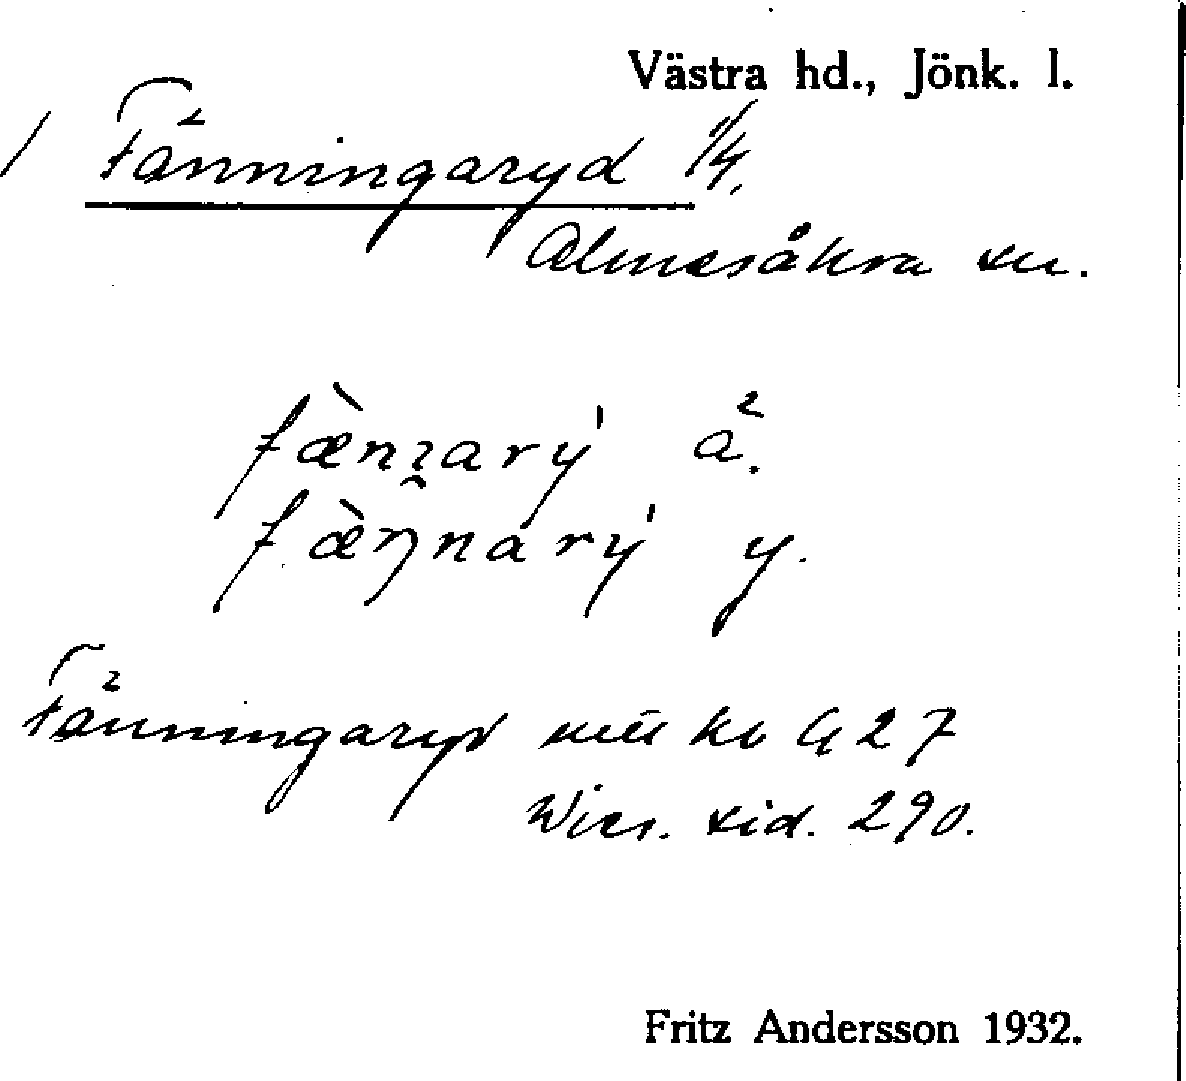 Västra hd., Jönk. l.
/ Fänningaryd 1/4.
Almesåkra sn.
fæ̀nɿarẏ́ ä.
fæ̀ŋnarẏ́ y.
Fänningaryd kb G 27
Wies. sid. 290.
Fritz Andersson 1932.